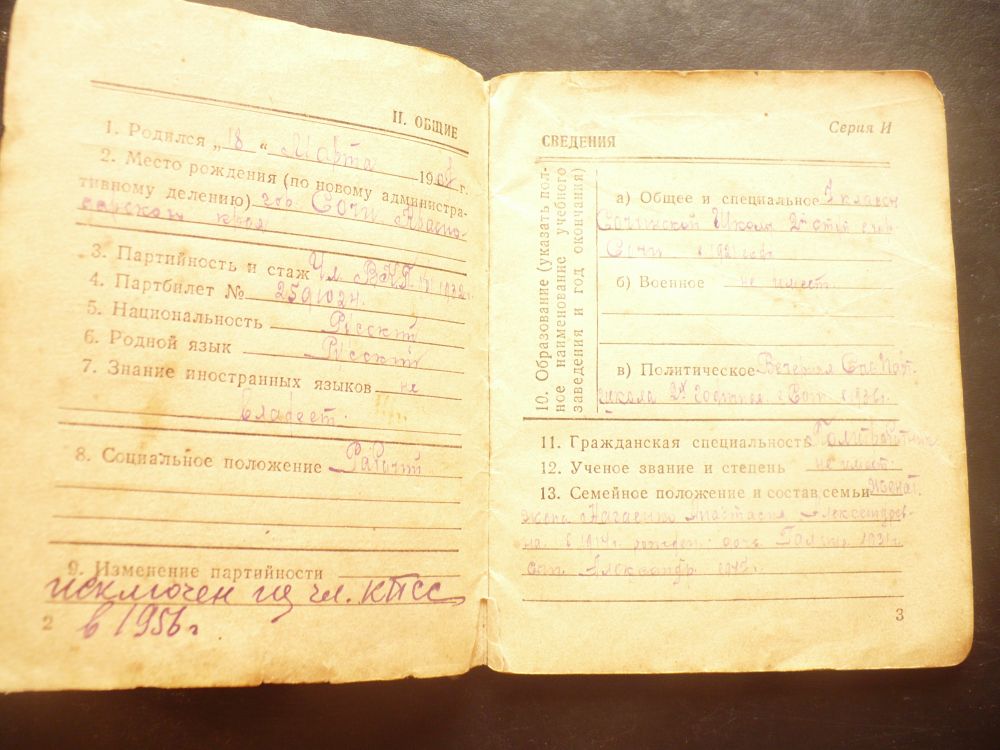 II. ОБЩИЕ
1. Родился „18“ Марта 190 г.
2. Место рождения (по новому администра-
тивному делению) гор Сочи Красно-
дарского края
3. Партийность и стаж Чл. ВКП 1932г.
4. Партбилет № 2591024.
5. Национальность Русский
6. Родной язык Русский
7. Знание иностранных языков не
владеет.
8. Социальное положение Рабочий
9. Изменение партийности
исключен из чл. КПСС
в 1956г
2
Серия И
СВЕДЕНИЯ
10. Образование (указать пол-
ное наименование учебного
заведения и год окончания)
а) Общее и специальное класса
Сочинской Школы 2й
Сочи в 1921
б) Военное не имеет.
в) Политическое Вечерняя Парт
школа 2х годичная г Сочи в 1936г.
11. Гражданская специальность Политработник
12. Ученое звание и степень не имеет.
13. Семейное положение и состав семьи Женат
жена Нагаенко Анастасия Александров-
на в 1914г рожден. дочь Галина 1931г
сын Александр
3